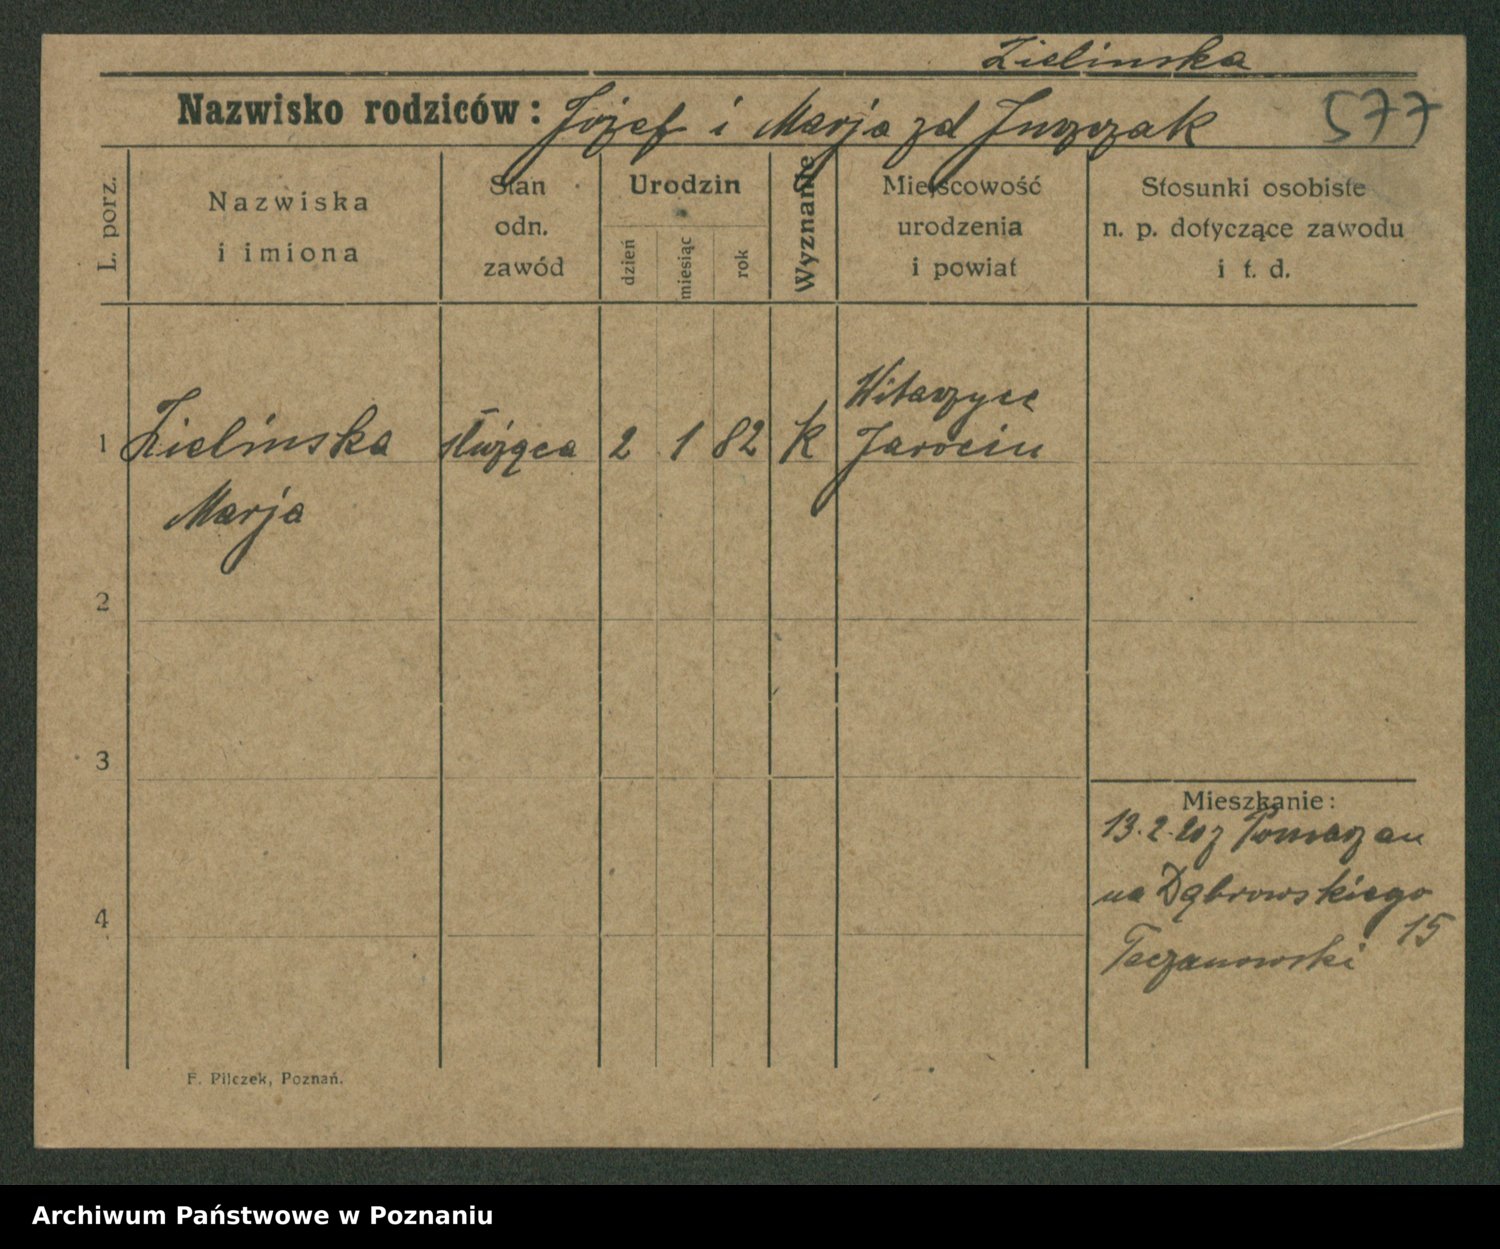 Zielinska
Nazwisko rodziców: Józef i Marja zd
577
L. porz.
Nazwiska
i imiona
Stan
odn.
zawód
Urodzin
dzień
miesiąc
rok
Wyznanie
Miejscowość
urodzenia
i powiat
Stosunki osobiste
n. p. dotyczące zawodu
i t. d.
1 Zielinska służąca 2 1 82 K Witaszyce
Jarocin
Marja
2
3
4
Mieszkanie:
13.2.
na Dąbrowskiego
15
Taczanowski
F. Pilczek, Poznań.
Archiwum Państwowe w Poznaniu